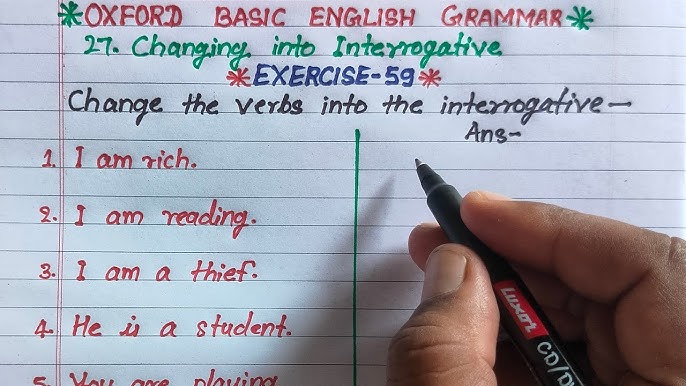 *OXFORD BASIC ENGLISH GRAMMAR*
27. Changing into Interrogative
*EXERCISE-59*
Change the verbs into the interrogative—
Ans-
1. I am rich.
2. I am reading.
3. I am a thief.
4. He is a student.
5. You are playing
LUXOR
CD/D